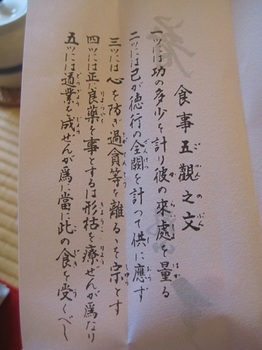 食事五觀之文
一ツには功の多少を計り彼の來處を量る
二ツには己が徳行の全闕を計つて供に應ず
三ツには心を防ぎ過貪等を離るゝを宗とす
四ツには正に良薬を事とするは形枯を療ぜんが為なり
五ツには道業を成ぜんが為に當に此の食を受くべし